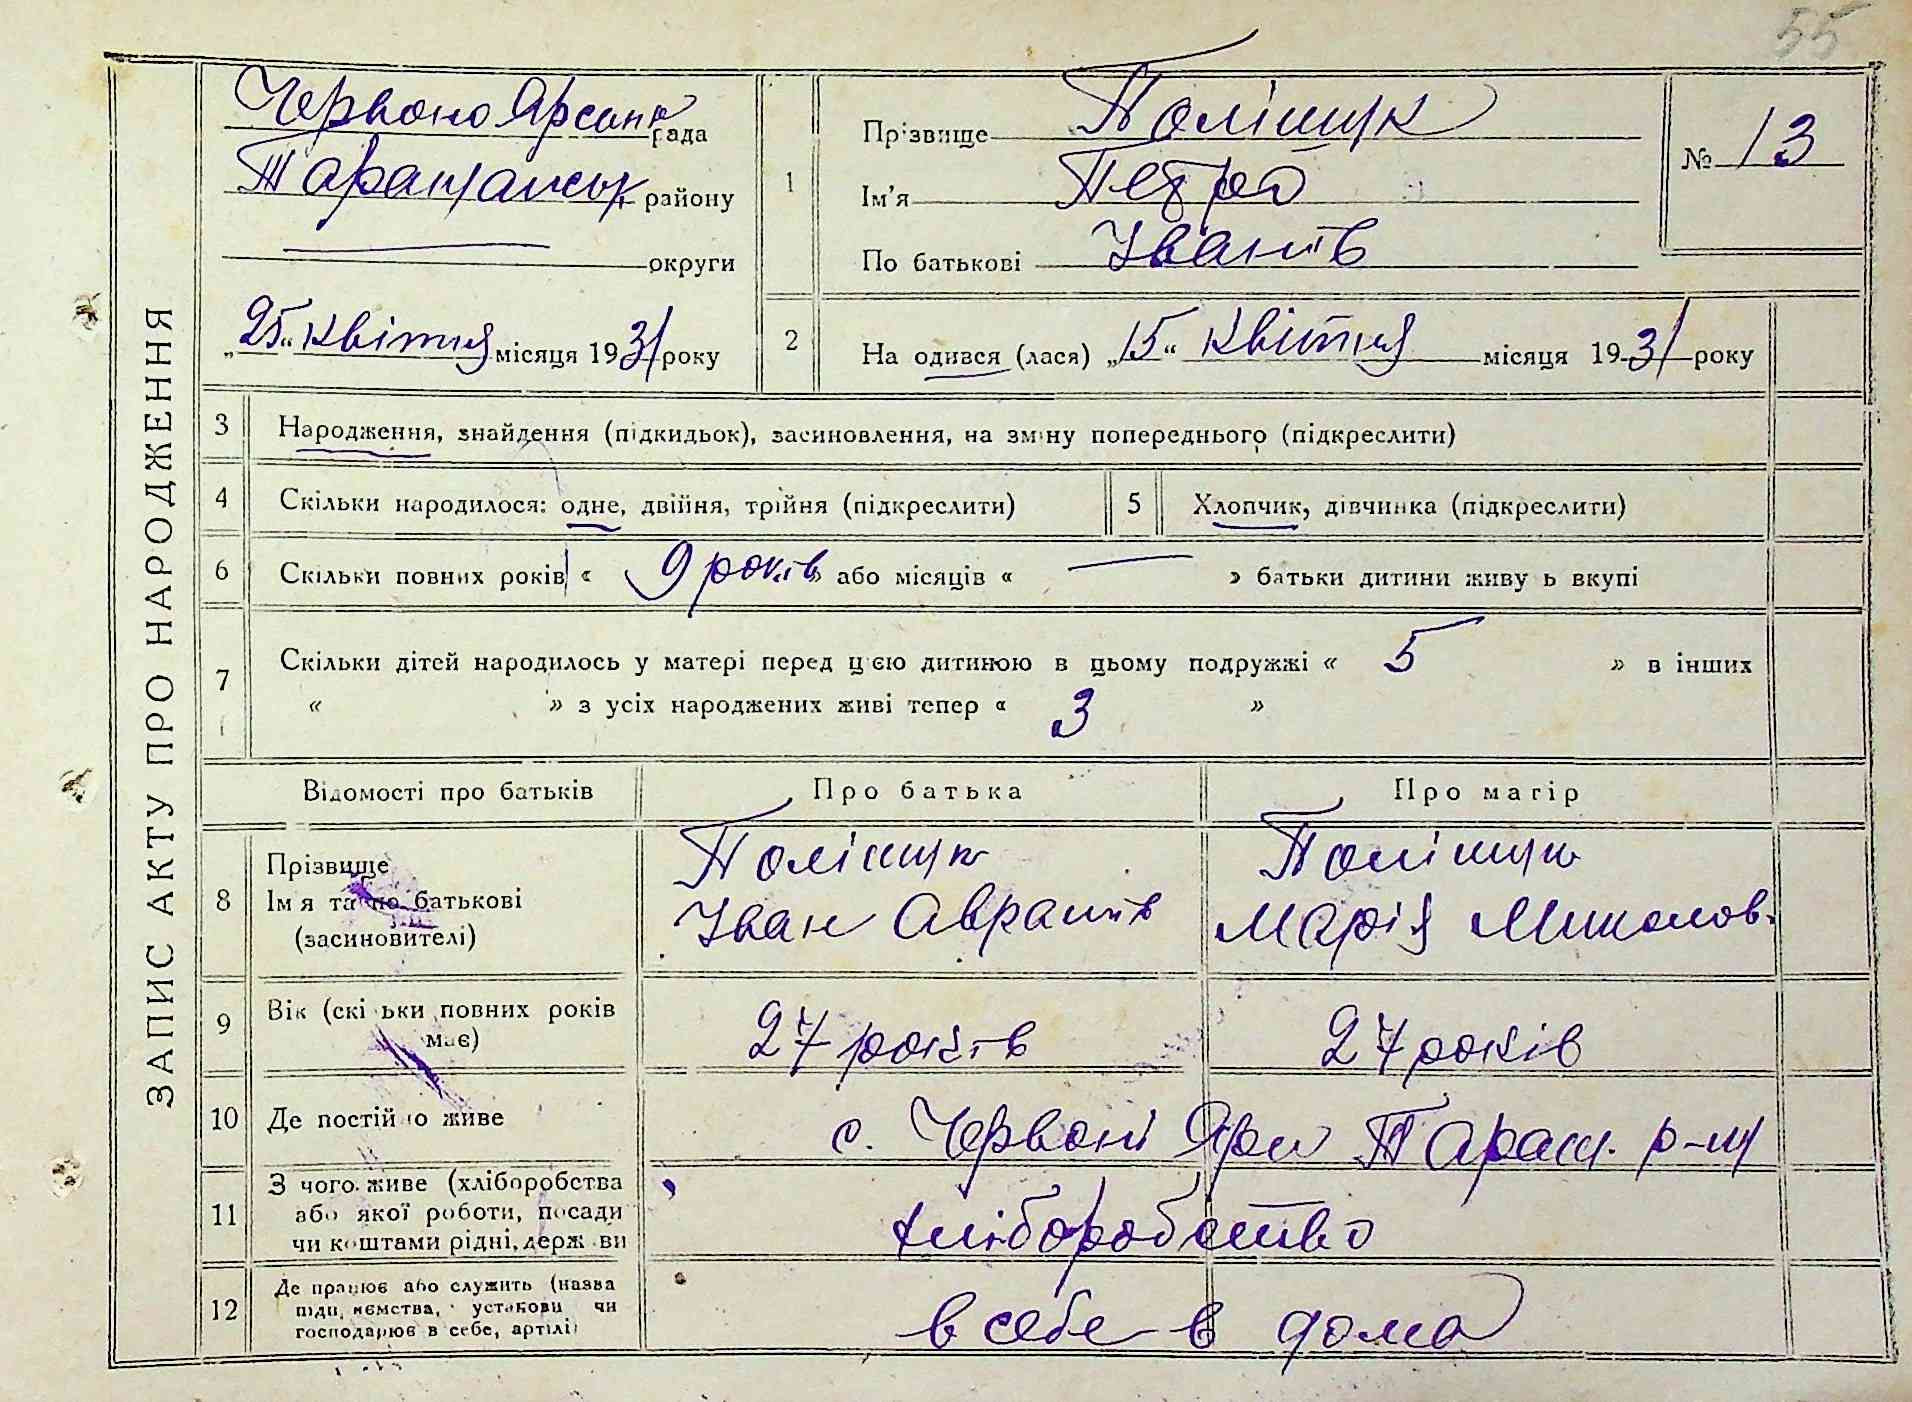 55
ЗАПИС АКТУ ПРО НАРОДЖЕННЯ
Червоно Ярська рада
Таращанськ. району
округи
„25“ квітня місяця 1931 року
1
Прізвище Поліщук
Ім'я Петро
По батькові Іванів
№ 13
2
На одився (лася) „15“ квітня місяця 1931 року
3 Народження, знайдення (підкидьок), засиновлення, на зміну попереднього (підкреслити)
4 Скільки народилося: одне, двійня, трійня (підкреслити)
5 Хлопчик, дівчинка (підкреслити)
6 Скільки повних років « 9 років » або місяців « — » батьки дитини живу ь вкупі
7 Скільки дітей народилось у матері перед цією дитиною в цьому подружжі « 5 » в інших
« » з усіх народжених живі тепер « 3 »
Відомості про батьків Про батька Про матір
8 Прізвище Ім я та по батькові (засиновителі)
Поліщук Поліщук
Іван Аврамів Марія Миколов.
9 Вік (скі ьки повних років має) 27 років 27 років
10 Де постій о живе с. Червоні Яри Таращ. р-ну
11 З чого живе (хліборобства
або якої роботи, посади
чи коштами рідні, держ ви
хліборобство
12 Де працює або служить (назва
підп иємства, установи чи
господарює в себе, артілі)
в себе в дома